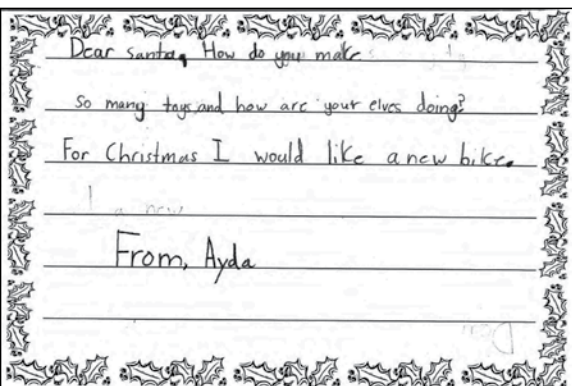 Dear santa, How do you make
so many toys and how are your elves doing?
For Christmas I would like a new bike.
I a new
From, Ayda